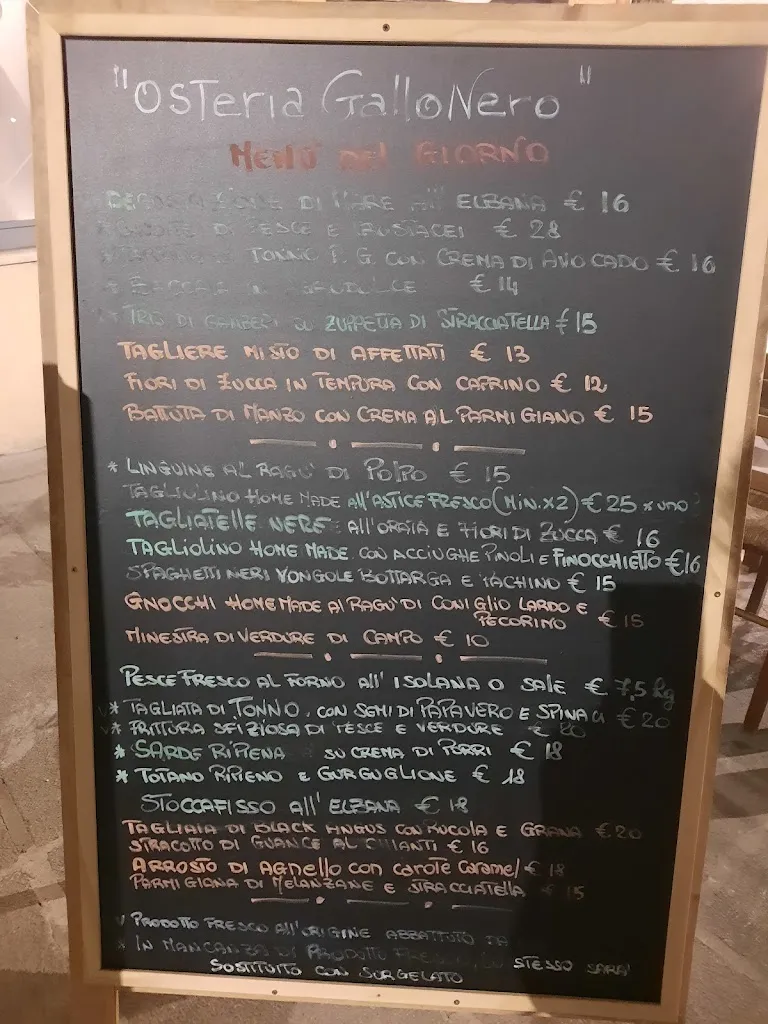 "OSTeria GalloNero"
MENÙ DEL GIORNO
DI MARE All' ELBANA € 16
DI PESCE E CROSTACEI € 28
TONNO P. G. CON CREMA DI AVOCADO € 16
€ 14
TRIS DI GAMBERI SU ZUPPETTA DI STRACCIATELLA € 15
TAGLIERE MISTO DI AFFETTATI € 13
FIORI DI ZUCCA IN TEMPURA CON CAPRINO € 12
BATTUTA DI MANZO CON CREMA AL PARMIGIANO € 15
* LINGUINE AL RAGU' DI POLPO € 15
TAGLIOLINO HOME MADE All'ASTICE FRESCO (MIN. X2) € 25 x uno
TAGLIATELLE NERE All'ORATA E FIORI DI ZUCCA € 16
TAGLIOLINO HOME MADE CON ACCIUGHE PINOLI E FINOCCHIETTO €16
SPAGHETTI NERI VONGOLE BOTTARGA E PACHINO € 15
GNOCCHI HOME MADE Al RAGU' DI CONIGLIO LARDO E
PECORINO € 15
MINESTRA DI VERDURE DI CAMPO € 10
PESCE FRESCO AL FORNO All' ISOLANA O SALE € 7,5 hg
* TAGLIATA DI TONNO, CON SEMI DI PAPAVERO E SPINACI € 20
* FRITTURA SFIZIOSA DI PESCE E VERDURE € 20
* SARDE RIPIENA SU CREMA DI PORRI € 18
* TOTANO RIPIENO E GURGUGLIONE € 18
STOCCAFISSO All' ELBANA € 18
TAGLIATA DI BLACK ANGUS CON RUCOLA E GRANA € 20
STRACOTTO DI GUANCE AL CHIANTI € 16
ARROSTO DI AGNELLO CON CAROTE CARAMEL € 18
PARMIGIANA DI MELANZANE E STRACCIATELLA € 15
√ PRODOTTO FRESCO All'ORIGINE ABBATTUTO DA
* IN MANCANZA DI PRODOTTO FRESCO, LO STESSO SARA'
SOSTITUITO CON SURGELATO